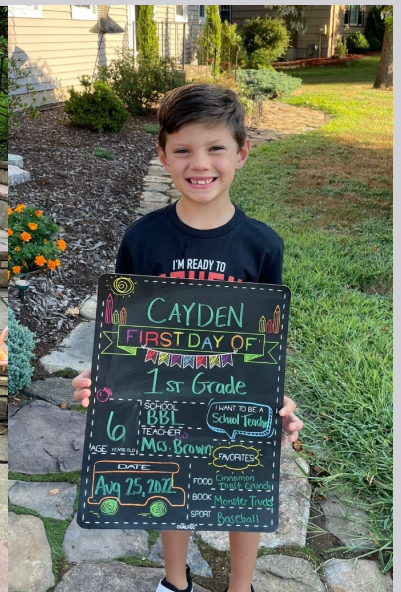 I'M READY TO
CAYDEN
FIRST DAY OF
1st Grade
6
AGE YEARS OLD
SCHOOL
BBI
TEACHER
Mrs. Brown
I WANT TO BE A
School Teacher
FAVORITES
DATE
Aug 25, 2021
FOOD Cinnamon Toast Crunch
BOOK Monster Trucks
SPORT Baseball